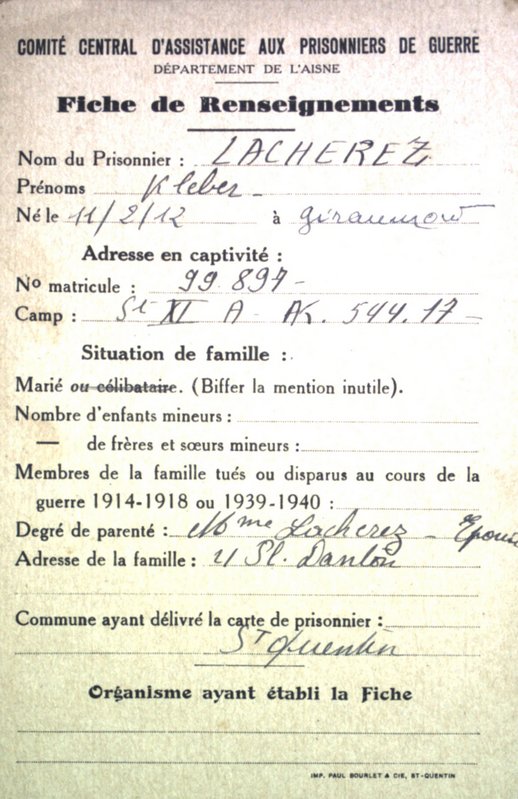 COMITÉ CENTRAL D'ASSISTANCE AUX PRISONNIERS DE GUERRE
DÉPARTEMENT DE L'AISNE
Fiche de Renseignements
Nom du Prisonnier : LACHEREZ
Prénoms Kleber
Né le 11/2/12 à Giraumont
Adresse en captivité :
No matricule : 99.897
Camp : St XI A - AK. 544.17 -
Situation de famille :
Marié ou célibataire. (Biffer la mention inutile).
Nombre d'enfants mineurs :
— de frères et sœurs mineurs :
Membres de la famille tués ou disparus au cours de la
guerre 1914-1918 ou 1939-1940 :
Degré de parenté : Mme Lacherez - Epouse
Adresse de la famille : Pl. Danton
Commune ayant délivré la carte de prisonnier :
St Quentin
Organisme ayant établi la Fiche
IMP. PAUL BOURLET & CIE, ST-QUENTIN